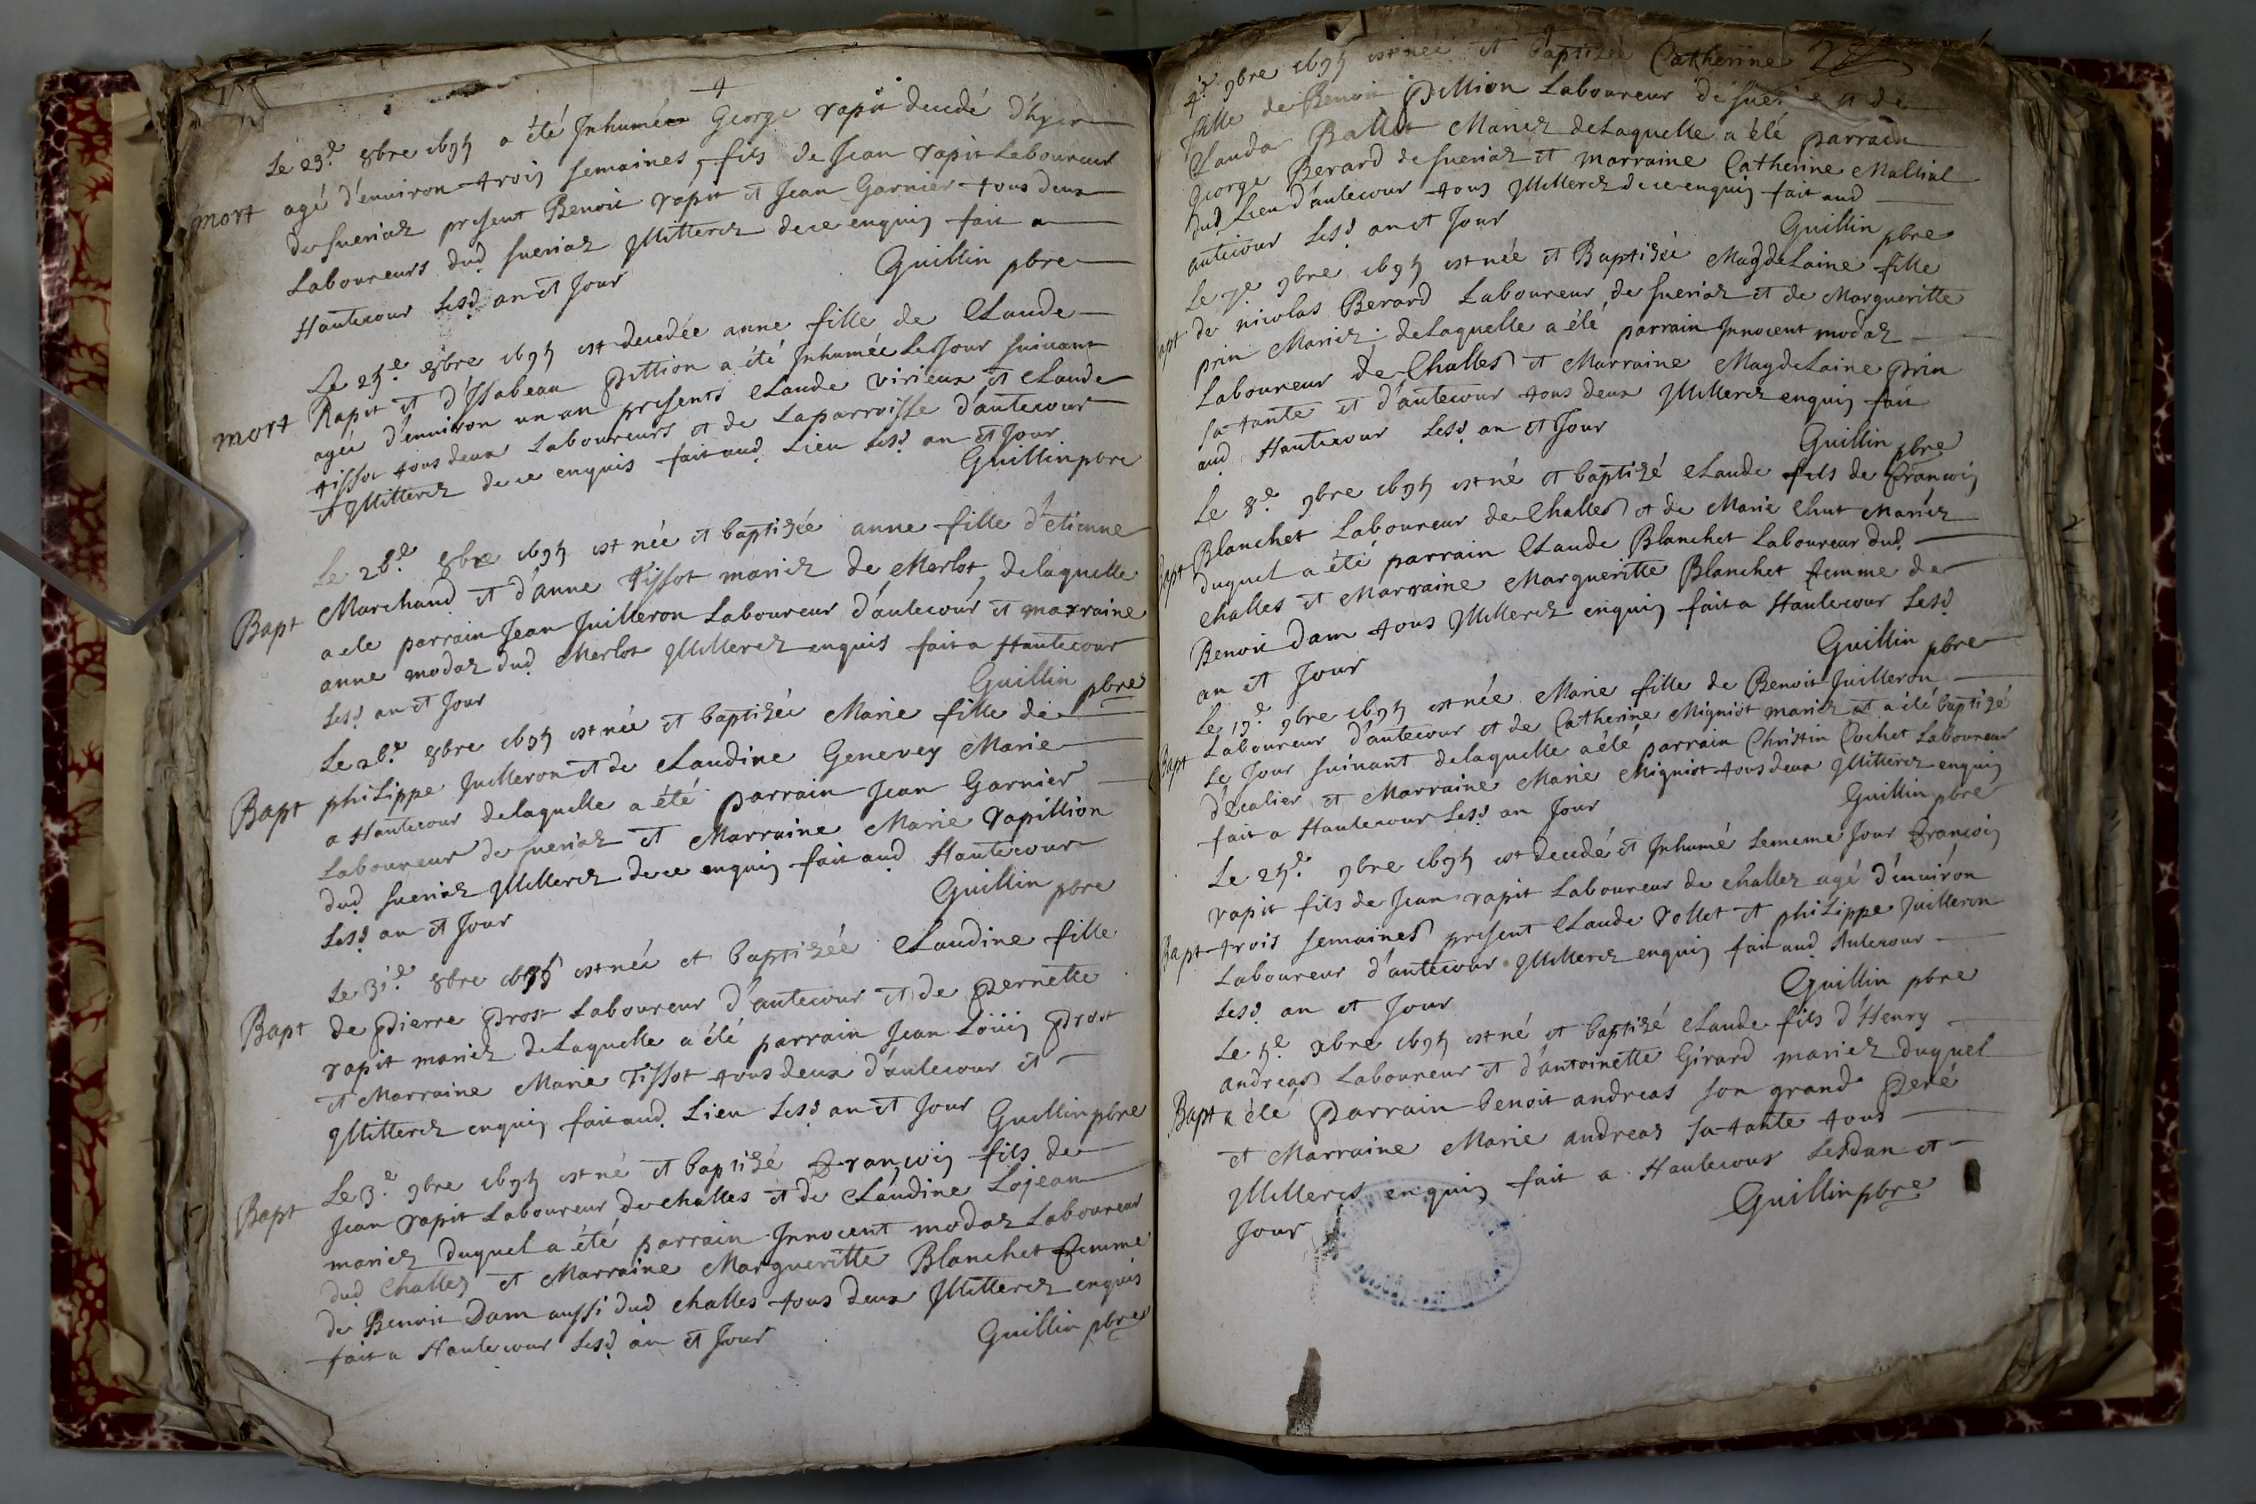 4
Le 23e 8bre 1695 a été Inhumée George rapit decedé d'hyer
mort agé d'environ trois semaines, fils de Jean rapit Laboureur
de sueriaz present Benoit rapit et Jean Garnier tous deux
Laboureurs dud sueriaz Illitterez de ce enquis fait a
Hautecour lesd an et Jour
Guillin pbre
Le 25e 8bre 1695 est decedée anne fille de Claude
mort Rapit et d'Isabeau pittion a été Inhumée Led Jour suivant
agée d'environ un an presents Claude virieux et Claude
tissot tous deux Laboureurs et de La parroisse d'autecour
et Illitterez de ce enquis fait aud Lieu lesd an et Jour
Guillin pbre
Le 26e 8bre 1695 est née et baptizée anne fille d'Etienne
Bapt Marchand et d'anne Tissot mariez de Merlot, de laquelle
a ete parrain Jean Juilleron Laboureur d'autecour et marraine
anne modaz dud Merlot Illitterez enquis fait a Hautecour
lesd an et Jour
Guillin pbre
Le 26e 8bre 1695 est née et baptizée Marie fille de
Bapt phiLippe Juilleron et de Claudine Genevey Marie
a Hautecour de laquelle a été parrain Jean Garnier
Laboureur de sueriaz et Marraine Marie Vapillion
dud sueriaz Illitterez de ce enquis fait aud Hautecour
lesd an et Jour
Guillin pbre
Le 31e 8bre 1695 est née et baptizée Claudine fille
Bapt de Pierre Prost Laboureur d'autecour et de Pernette
rapit mariez de Laquelle a été parrain Jean Louis Prost
et Marraine Marie Tissot tous deux d'autecour et
Illitterez enquis fait aud Lieu lesd an et Jour
Guillin pbre
Le 3e 9bre 1695 est né et baptizé François fils de
Bapt Jean rapit Laboureur de challes et de Claudine Lojean
mariez duquel a été parrain Innocent modaz Laboureur
dud Challes et Marraine Margueritte Blanchet femme
de Benoit Dam aussi dud challes tous deux Illitterez enquis
fait a Hautecour lesd an et Jour
Guillin pbre
4e 9bre 1695 est née et baptizée Catherine
fille de Benoit Pittion Laboureur de sueriaz et de
Clauda Ballet Mariez de Laquelle a été parrain
George Berard de sueriaz et marraine Catherine Mallial
dud Lieu d'autecour tous Illitterez de ce enquis fait aud
autecour lesd an et Jour
Guillin pbre
Le 7e 9bre 1695 est née et Baptizée MagdeLaine fille
bapt de nicolas Berard Laboureur de sueriaz et de Margueritte
prin Mariez de laquelle a été parrain Innocent modaz
Laboureur de Challes et Marraine MagdeLaine prin
sa tante et d'autecour tous deux Illitterez enquis fait
aud Hautecour lesd an et Jour
Guillin pbre
Le 8e 9bre 1695 est né et baptizé Claude fils de François
Bapt Blanchet Laboureur de Challes et de Marie Chut Mariez
duquel a été parrain Claude Blanchet Laboureur dud
challes et Marraine Margueritte Blanchet femme de
Benoit Dam tous Illitterez enquis fait a Hautecour lesd
an et Jour
Guillin pbre
Le 19e 9bre 1695 est née Marie fille de Benoit Juilleron
Bapt Laboureur d'autecour et de Catherine Migniot mariez et a été baptizé
Le Jour suivant de laquelle a été parrain Christin Cochet Laboureur
d'ecalier et Marraine Marie Migniot tous deux Illitterez enquis
fait a Hautecour lesd an Jour
Guillin pbre
Le 25e 9bre 1695 est decedé et Inhumé Le meme Jour François
rapit fils de Jean rapit Laboureur de challez agé d'environ
Bapt trois semaines present Claude Vollet et phiLippe Juilleron
Laboureur d'autecour Illitterez enquis fait aud Autecour
lesd an et Jour
Guillin pbre
Le 5e xbre 1695 est né et baptizé Claude fils d'Henry
andreas Laboureur et d'antoinette Girard mariez duquel
Bapt a été Parrain benoit andreas son grand Pere
et Marraine Marie andreaz sa tante tous
Illitterez enquis fait a Hautecour Lesd an et
Jour
Guillin pbre